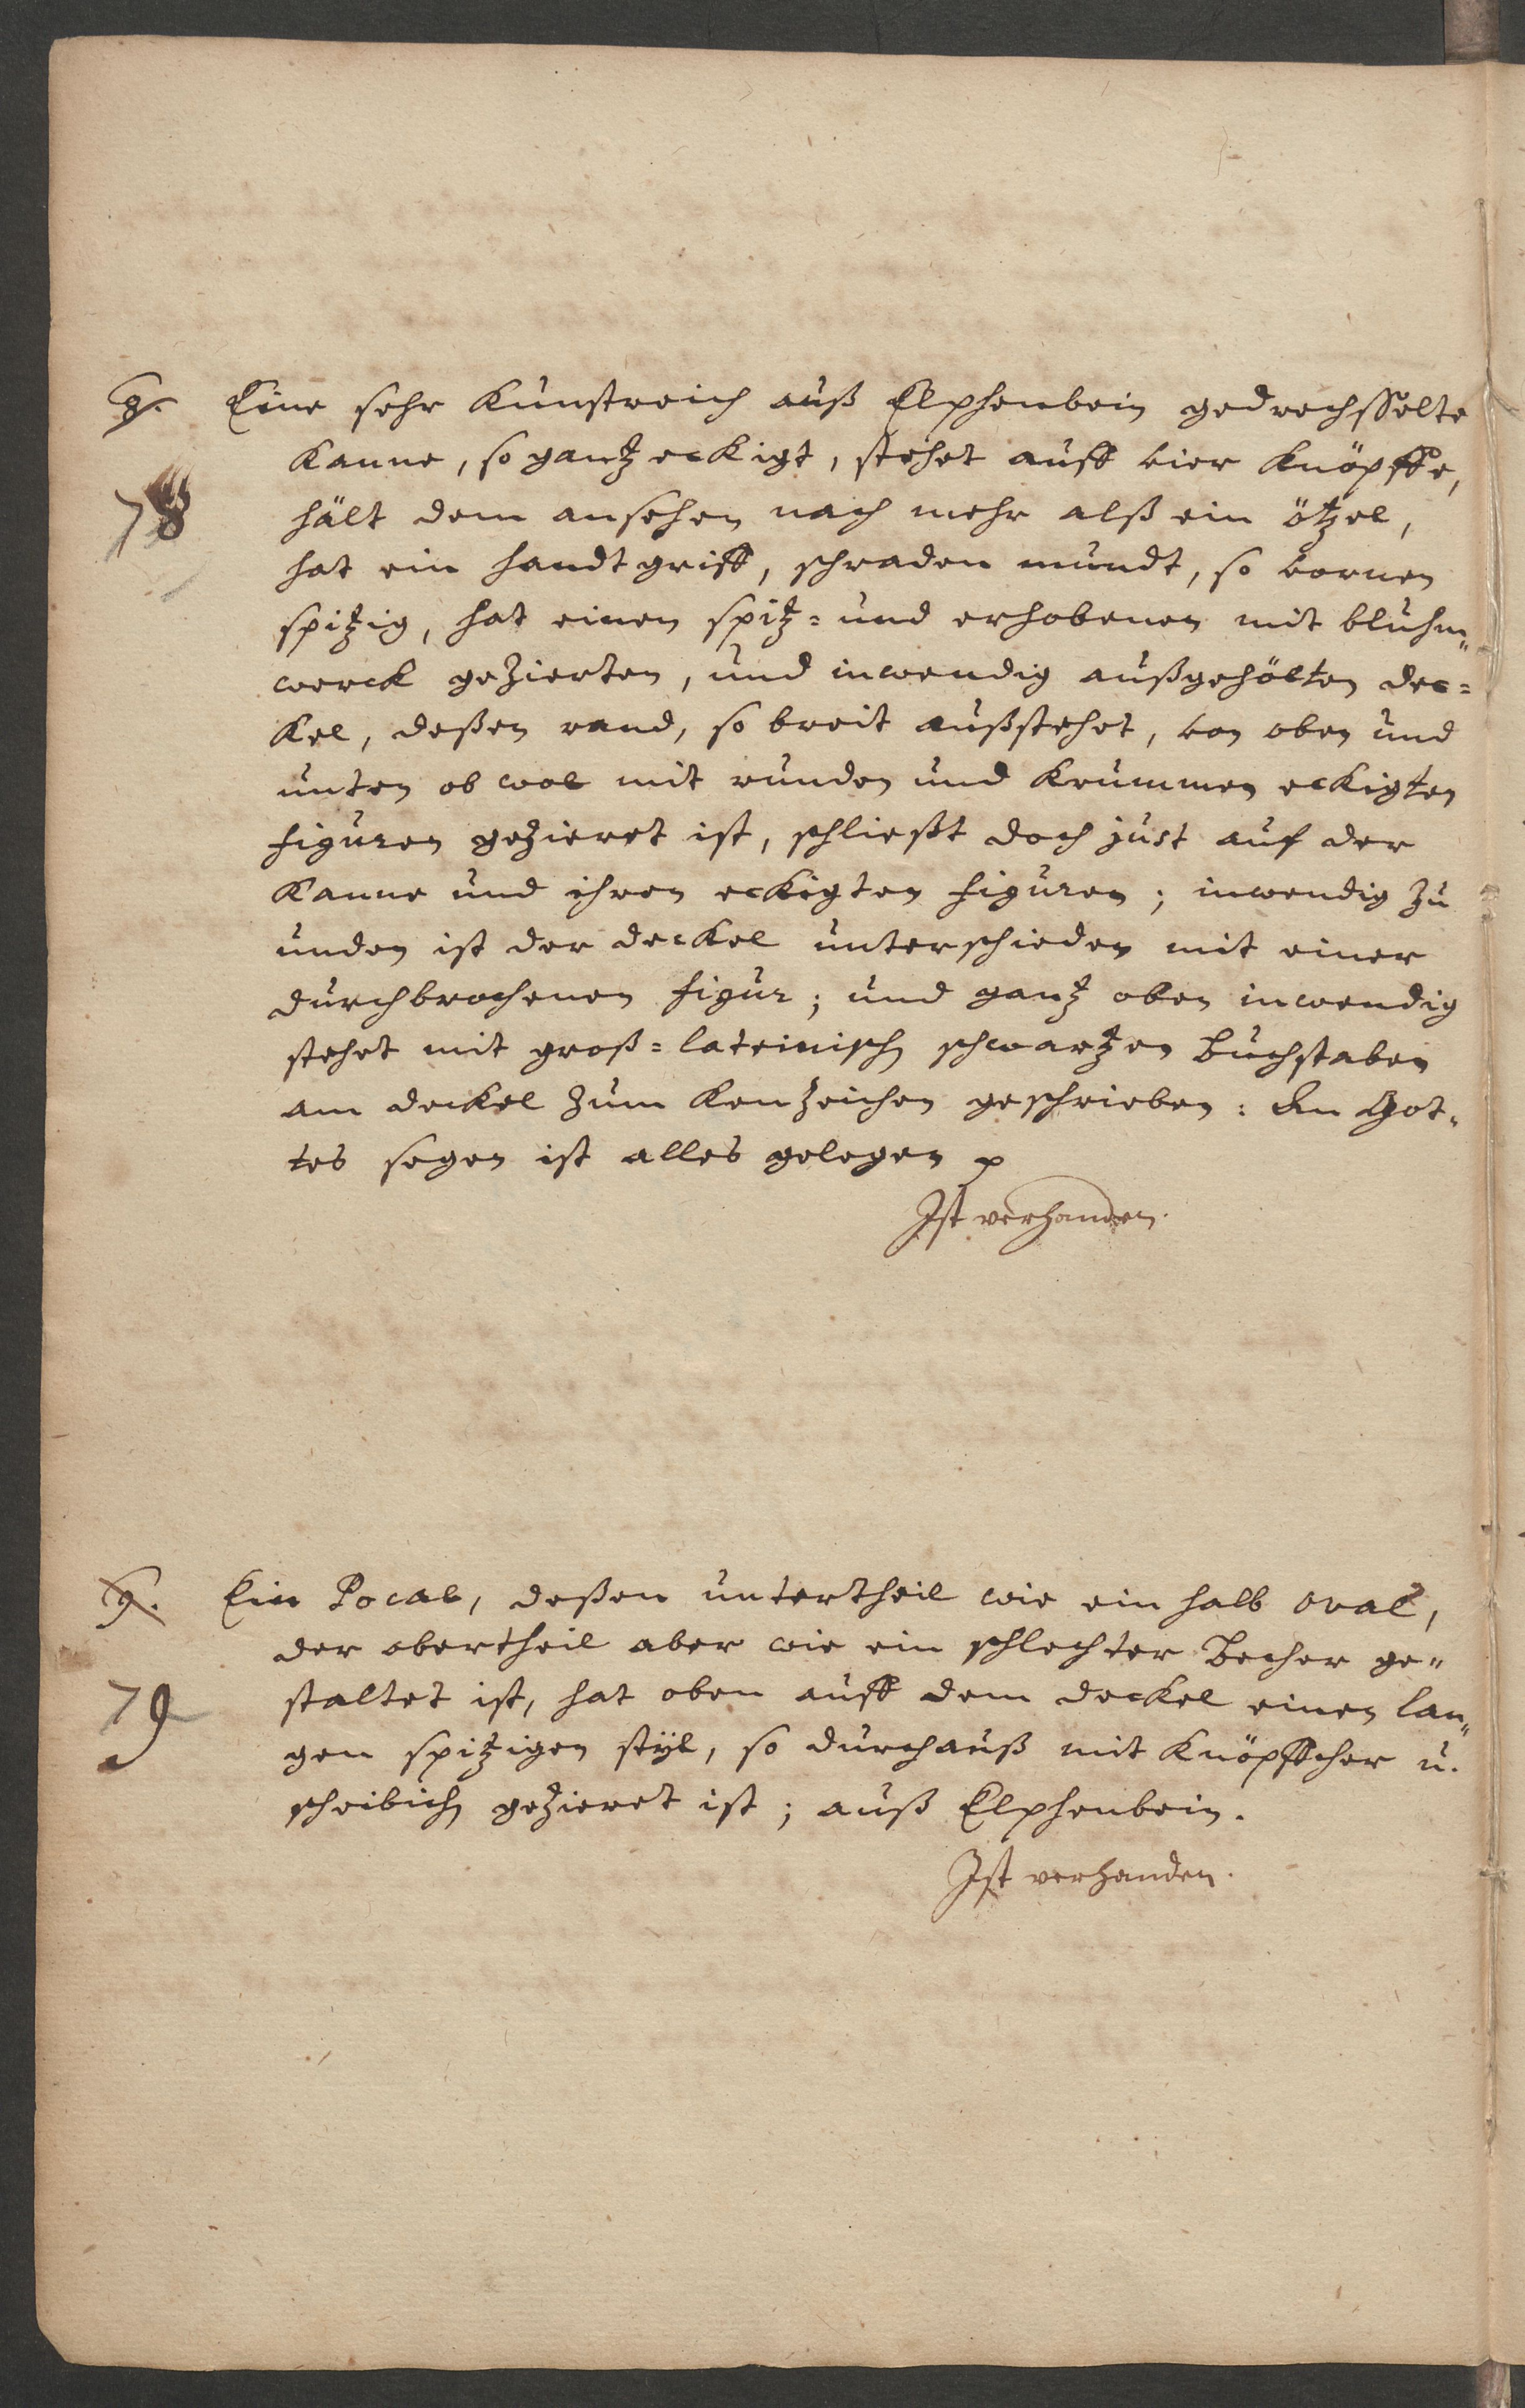 8. Eine sehr Kunstreich auß Elphenbein gedrechsselte
78
Kanne, so gantz eckigt, stehet auff vier Knöpffe,
hält dem ansehen nach mehr alß ein ötzel,
hat ein handtgriff, schraden mundt, so vornen
spitzig, hat einen spitz= und erhobenen mit bluhm„
werck gezierten, und inwendig außgehölten dec=
kel, deßen rand, so breit außstehet, von oben und
unten ob wol mit runden und krummen eckigten
figuren gezieret ist, schließt doch just auf der
Kanne und ihren eckigten figuren; inwendig zu
unden ist der deckel unterschieden mit einer
durchbrochenen figur; und gantz oben inwendig
stehet mit groß=lateinisch schwartzen buchstaben
am deckel zum Kenzeichen geschrieben: An Got„
tes segen ist alles gelegen
Ist verhanden.
9. Ein Pocal, deßen untertheil wie ein halb oval,
der obertheil aber wie ein schlechter Becher ge„
79
staltet ist, hat oben auff dem deckel einen lan„
gen spitzigen stÿl, so durchauß mit Knöpffcher u.
scheibich gezieret ist; auß Elphenbein.
Ist verhanden.